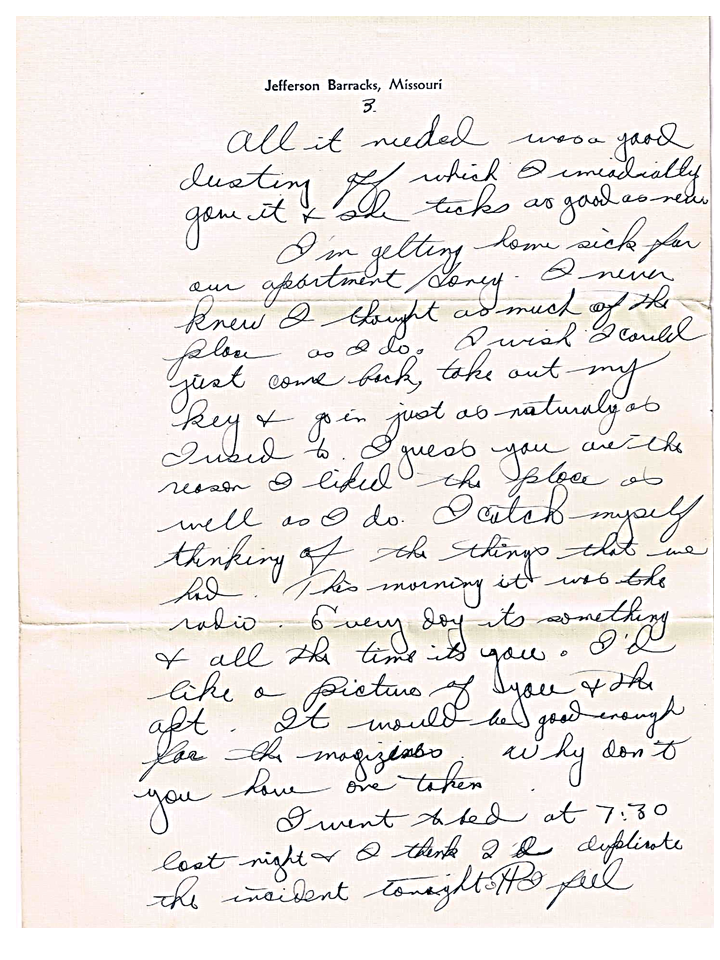 Jefferson Barracks, Missouri
3.
All it needed was a good
dusting off which I imeadially
gave it & she ticks as good as new
I'm getting home sick for
our apartment Honey. I never
knew I thought as much of the
place as I do. I wish I could
just come back, take out my
key & go in just as naturaly as
I used to. I guess you are the
reason I liked the place as
well as I do. I catch myself
thinking of the things that we
had. This morning it was the
radio. Every day its something
& all the time its you. I'd
like a picture of you & the
apt. It would be good enough
for the magizines. Why don't
you have one taken.
I went to bed at 7:30
last night & I think I'll duplicate
the incident tonight. I feel